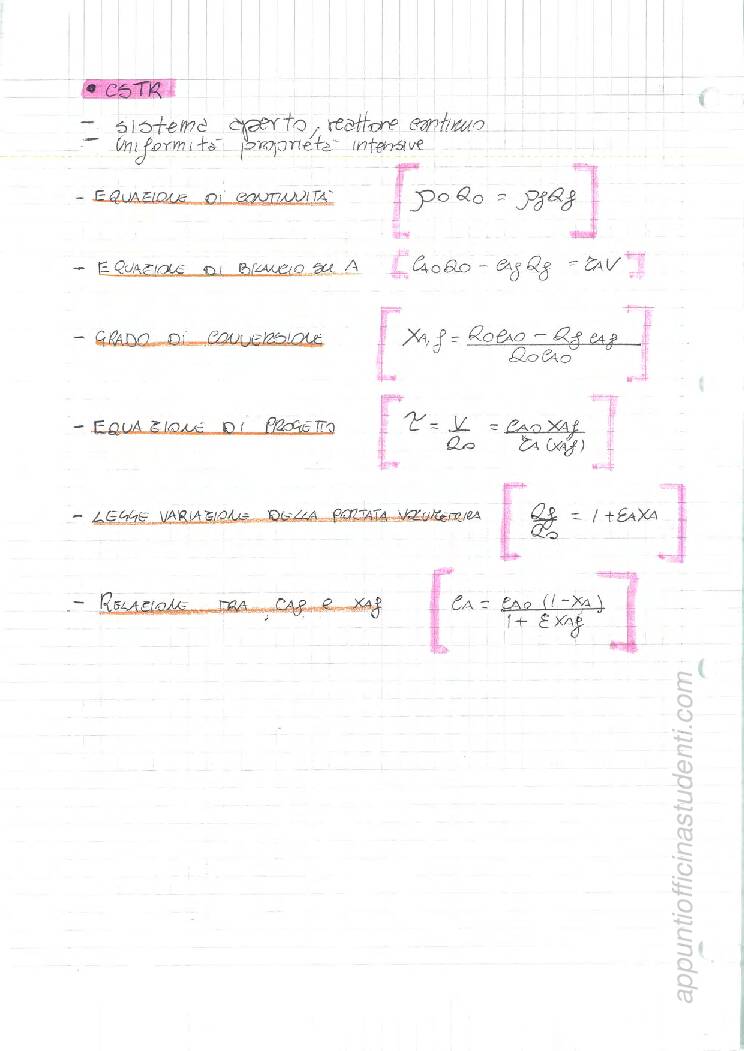 • CSTR
- sistema aperto, reattore continuo
- uniformità proprietà intensive
- EQUAZIONE DI CONTINUITÀ [ρ0 Q0 = ρf Qf]
- EQUAZIONE DI BILANCIO SU A [CA0 Q0 - CAf Qf = rA V]
- GRADO DI CONVERSIONE [XA,f = (Q0 CA0 - Qf CAf) / (Q0 CA0)]
- EQUAZIONE DI PROGETTO [τ = V / Q0 = CA0 XAf / rA(XAf)]
- LEGGE VARIAZIONE DELLA PORTATA VOLUMETRICA [Qf / Q0 = 1 + εA XA]
- RELAZIONE TRA CAf e XAf [CA = CA0 (1 - XA) / (1 + ε XAf)]
appuntiofficinastudenti.com